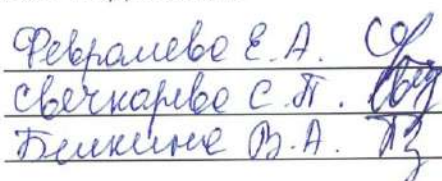 Февралева Е.А.
Свечкарева С.П.
Белкина В.А.